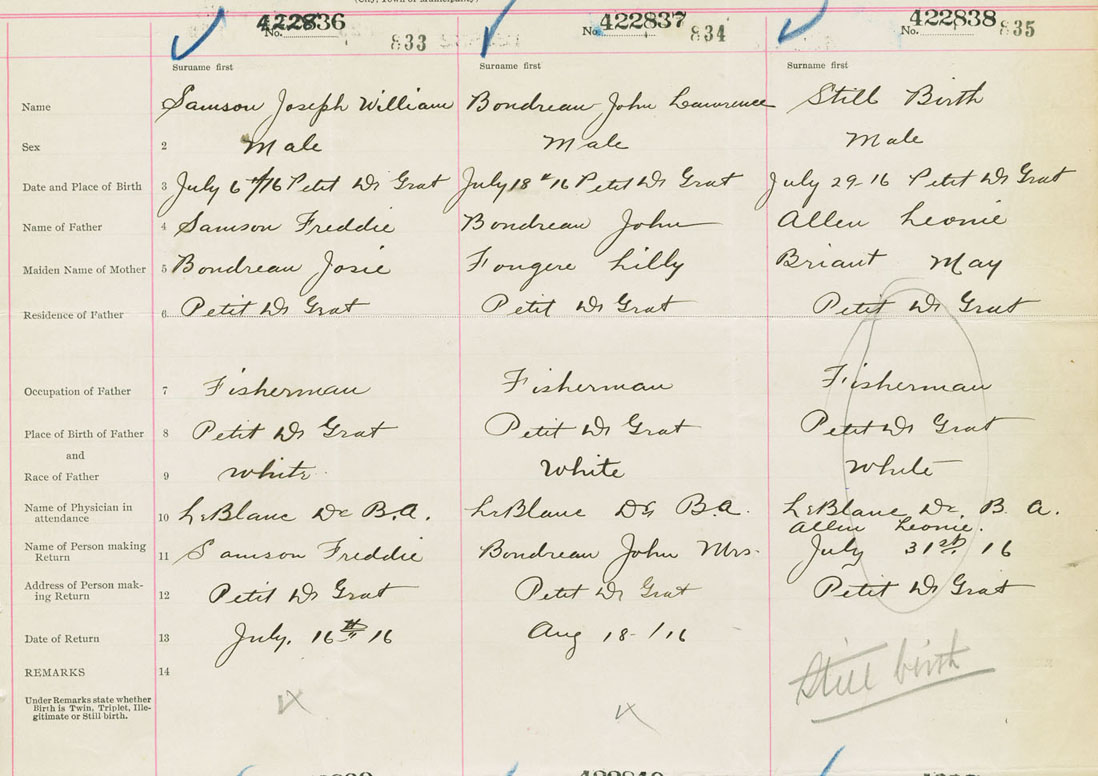 422836 422837 422838
No. 833 No. 834 No. 835
Surname first Surname first Surname first
Name Samson Joseph William Bondreau John Lawrence Still Birth
Sex 2 Male Male Male
Date and Place of Birth 3 July 6th/16 Petit De Grat July 18th 16 Petit De Grat July 29-16 Petit De Grat
Name of Father 4 Samson Freddie Bondreau John Allen Leonie
Maiden Name of Mother 5 Bondreau Josie Fougere Lilly Briant May
Residence of Father 6 Petit De Grat Petit De Grat Petit De Grat
Occupation of Father 7 Fisherman Fisherman Fisherman
Place of Birth of Father 8 Petit De Grat Petit De Grat Petit De Grat
and
Race of Father 9 White White White
Name of Physician in
attendance 10 LeBlanc B.A. LeBlanc B.A. LeBlanc B. A.
Allen Leonie.
Name of Person making
Return 11 Samson Freddie Bondreau John Mrs. July 31st 16
Address of Person mak-
ing Return 12 Petit De Grat Petit De Grat Petit De Grat
Date of Return 13 July, 16th 16 Aug 18-/16
REMARKS 14 Still birth
Under Remarks state whether
Birth is Twin, Triplet, Ille-
gitimate or Still birth.